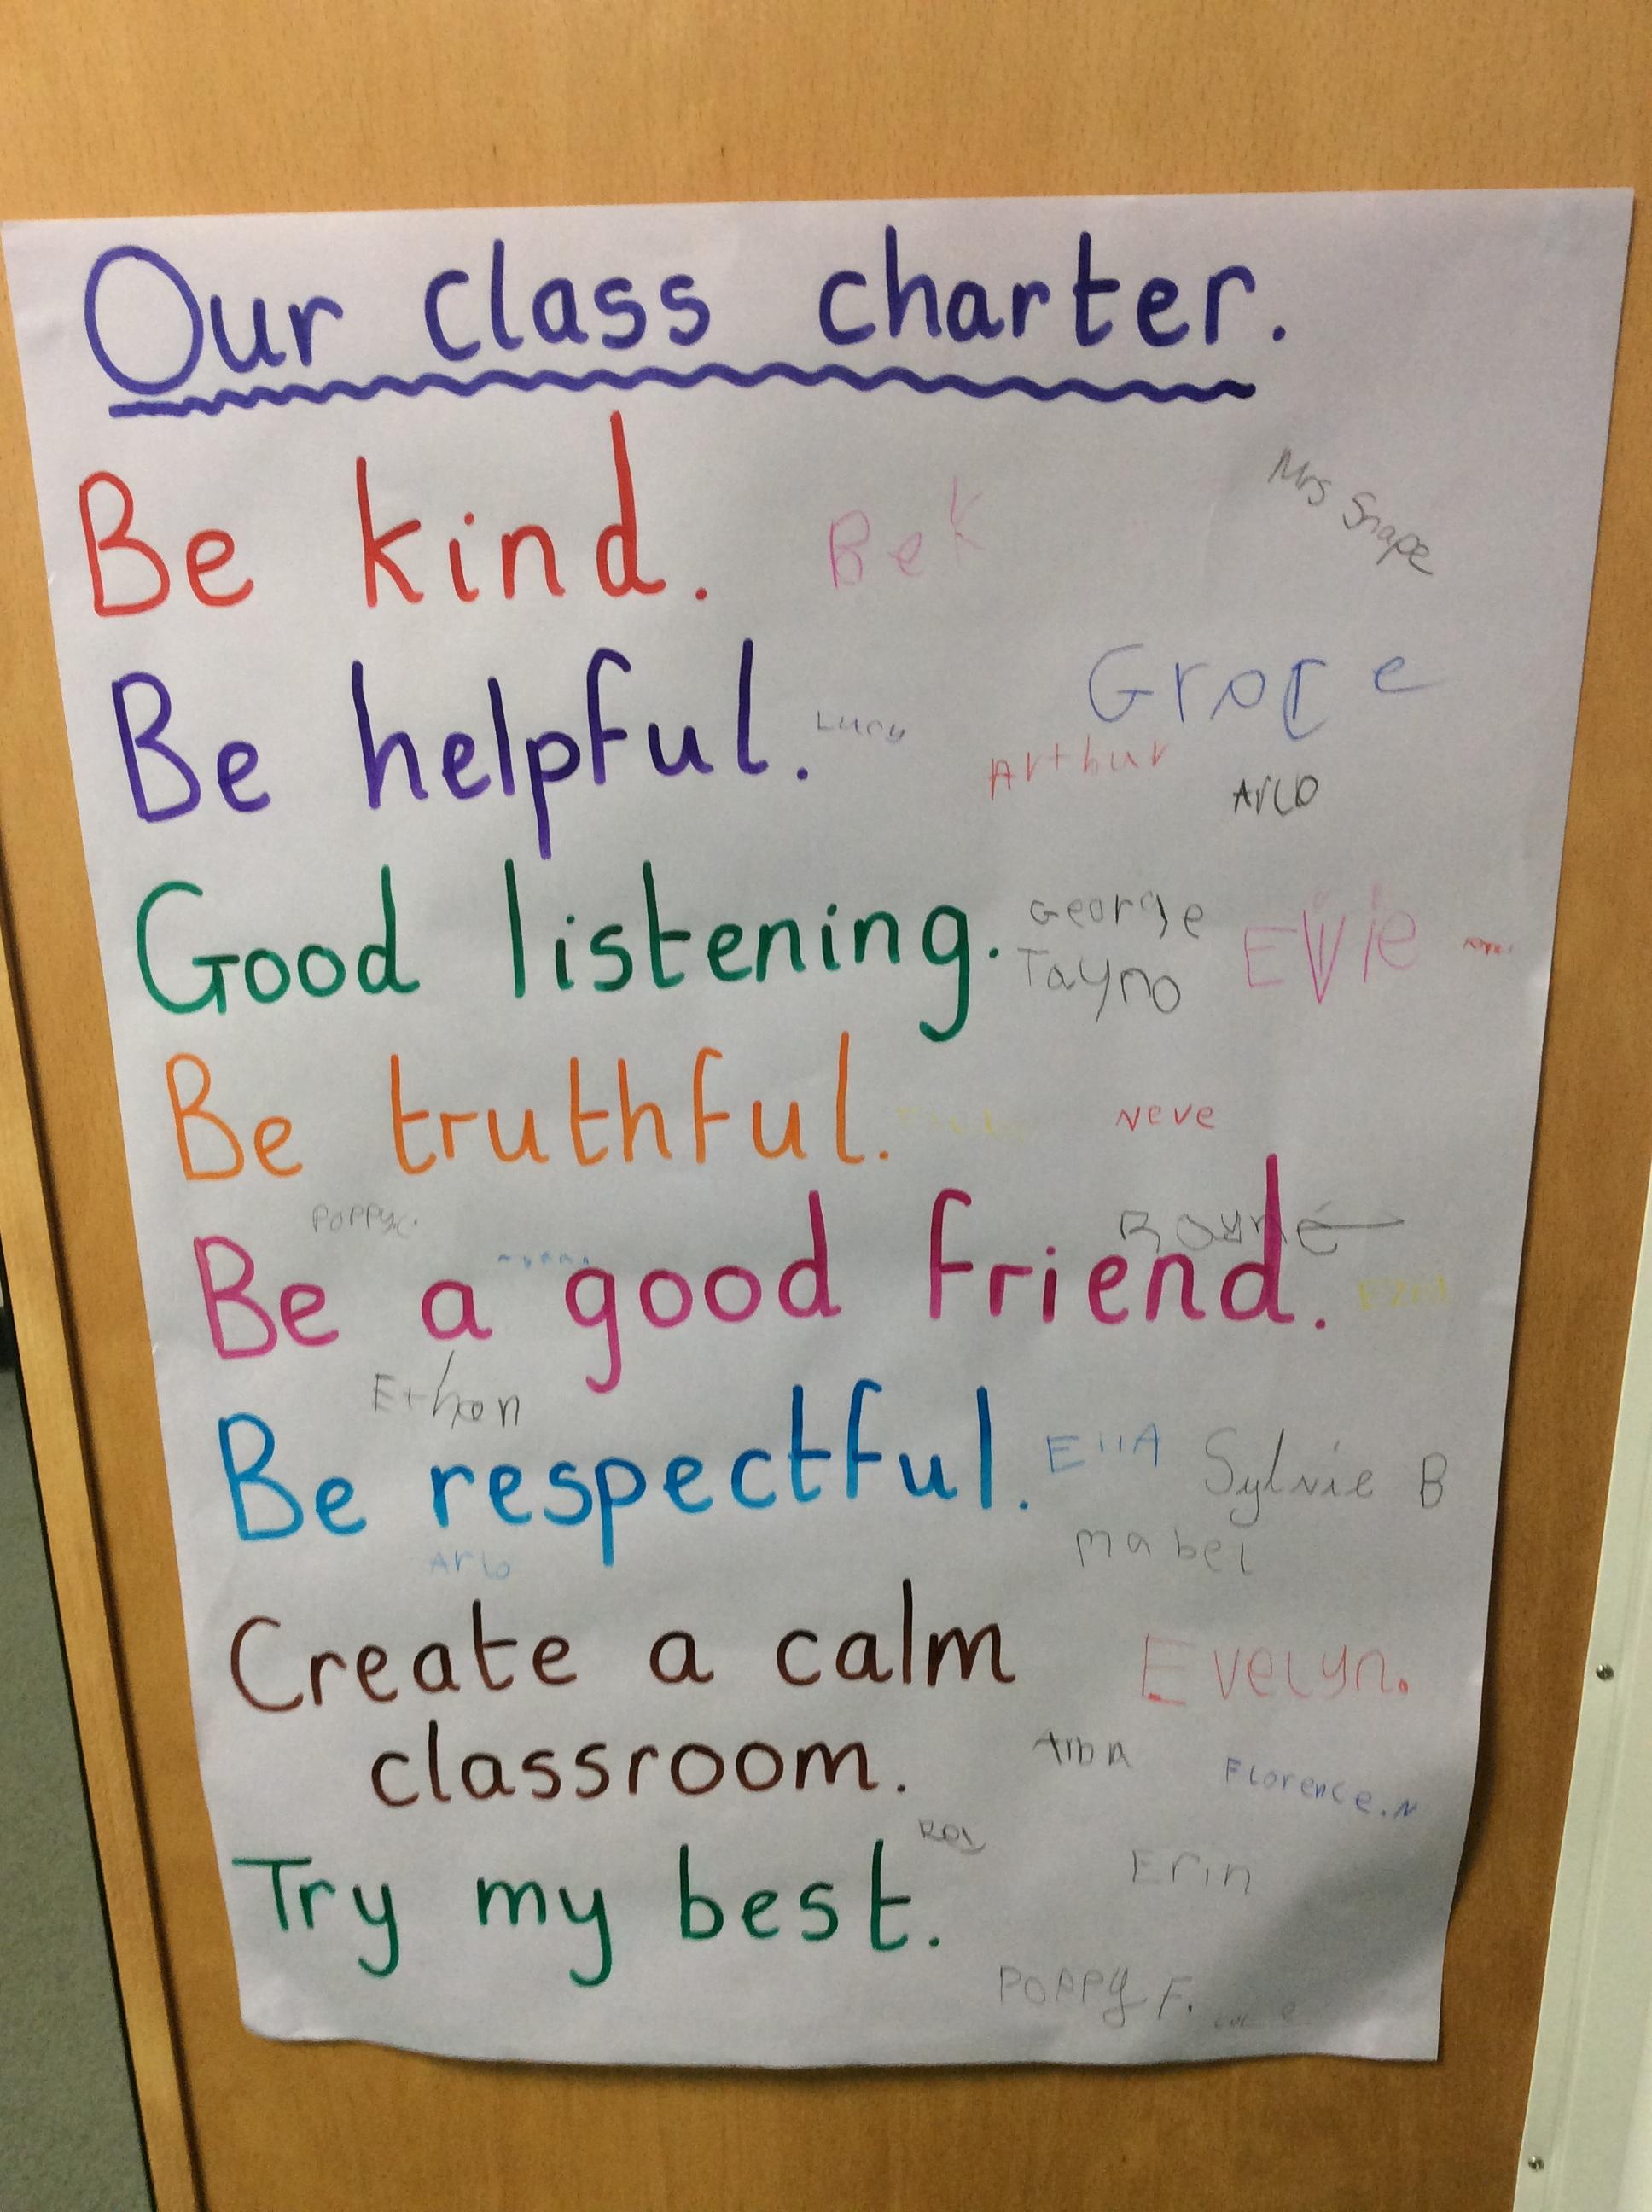 Our class charter.
Mrs Snape
Be kind. Bek
Grace
Be helpful. Lucy
Arthur
Arlo
Good listening. George Evie
Tayno
Be truthful. Neve
Poppy C.
Be a good friend. Ezra
Ethan
Be respectful. EllA Sylvie B
mabel
Arlo
Create a calm Evelyn.
classroom. Florence.N
Erin
Try my best.
Poppy F.